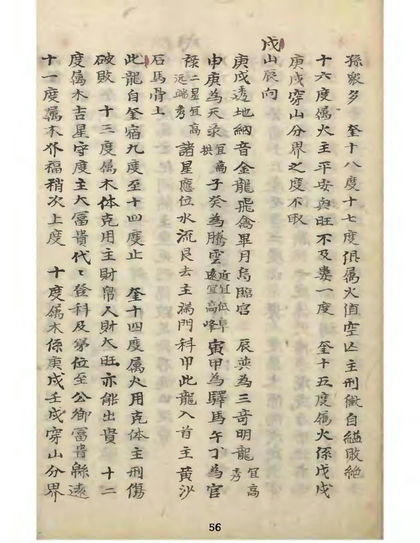 孫衆多　奎十八度十七度俱属火值空亡主刑徽自縊敗絶
十六度属火主平安興旺不及婁一度　奎十五度属火係戊戌
庚戌穿山分界之度不取
戍山辰向
庚戌透地納音金龍飛禽畢月烏臨宮　辰巽為三竒明龍宜高秀
申庚為天录宜高拱子癸為騰雲近宜低阜遠宜高峰寅甲為驛馬午丁為官
祿二星宜高远端秀諸星應位水流艮去主滿門科甲此龍入首主黄沙
石馬骨土
此龍自奎宿九度至十四度止　奎十四度属火用克体主刑傷
破敗　十三度属木体克用主財帛人財大旺亦能出貴　十二
度属木吉星守度主大冨貴代〻登科及第位至公卿冨貴綿遠
十一度属木作福稍次上度　十度属木係庚戌壬戌穿山分界
56